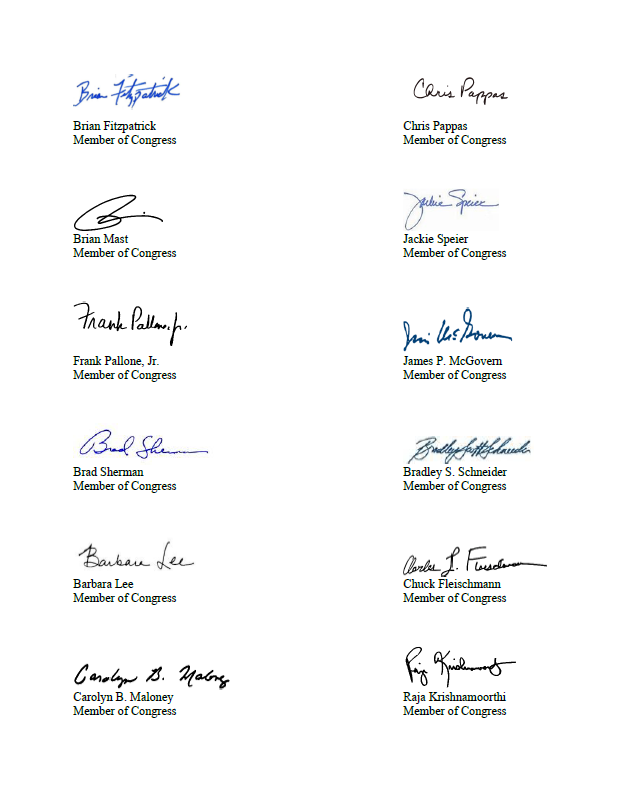 Brian Fitzpatrick
Chris Pappas
Brian Fitzpatrick
Chris Pappas
Member of Congress
Member of Congress
Jackie Speier
Brian Mast
Jackie Speier
Member of Congress
Member of Congress
Frank Pallone, Jr.
Jim McGovern
Frank Pallone, Jr.
James P. McGovern
Member of Congress
Member of Congress
Brad Sherman
Bradley Scott Schneider
Brad Sherman
Bradley S. Schneider
Member of Congress
Member of Congress
Barbara Lee
Charles J. Fleischmann
Barbara Lee
Chuck Fleischmann
Member of Congress
Member of Congress
Carolyn B. Maloney
Raja Krishnamoorthi
Carolyn B. Maloney
Raja Krishnamoorthi
Member of Congress
Member of Congress